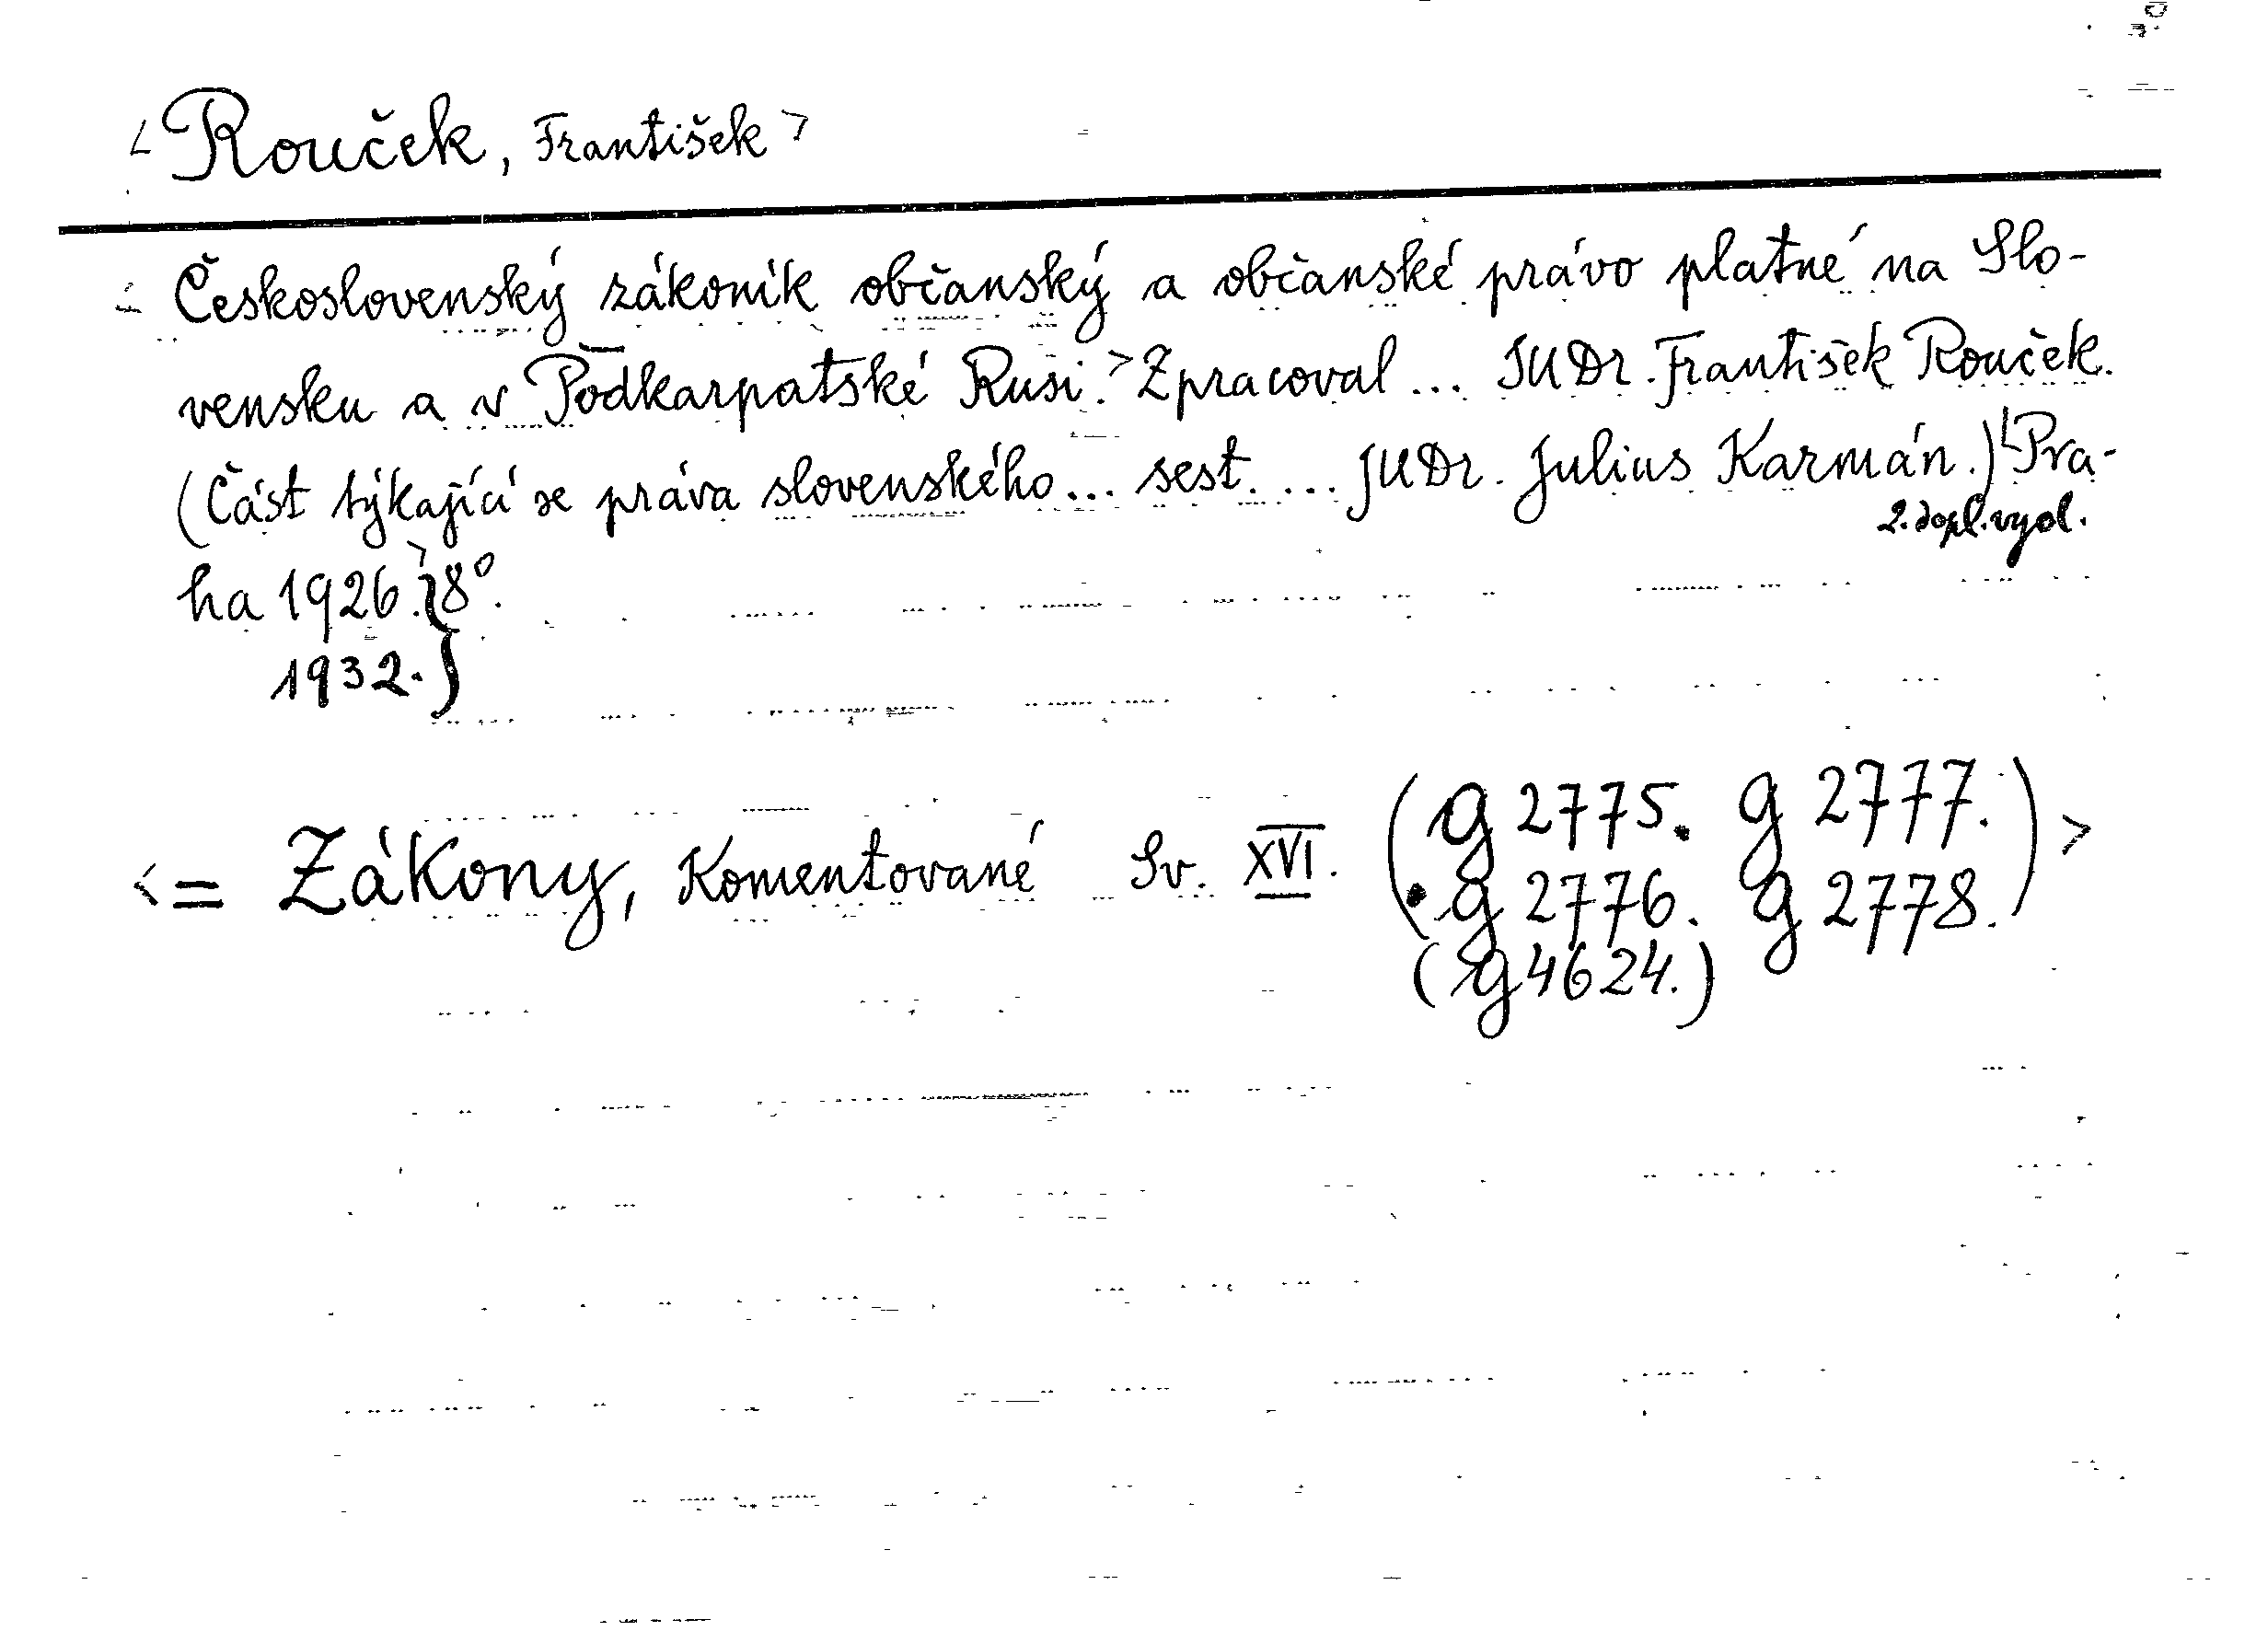 <Rouček, František>
<Československý zákoník občanský a občanské právo platné na Slo-
vensku a v Podkarpatské Rusi.> Zpracoval ... JUDr. František Rouček.
(Část týkající se práva slovenského... sest. ... JUDr. Julius Karmán.) <Pra-
2. dopl. vyd.
ha 1926.> } 8°.
1932. }
<= Zákony, Komentované Sv. XVI. (g 2775. g 2777.)>
g 2776. g 2778.
(g 4624.)